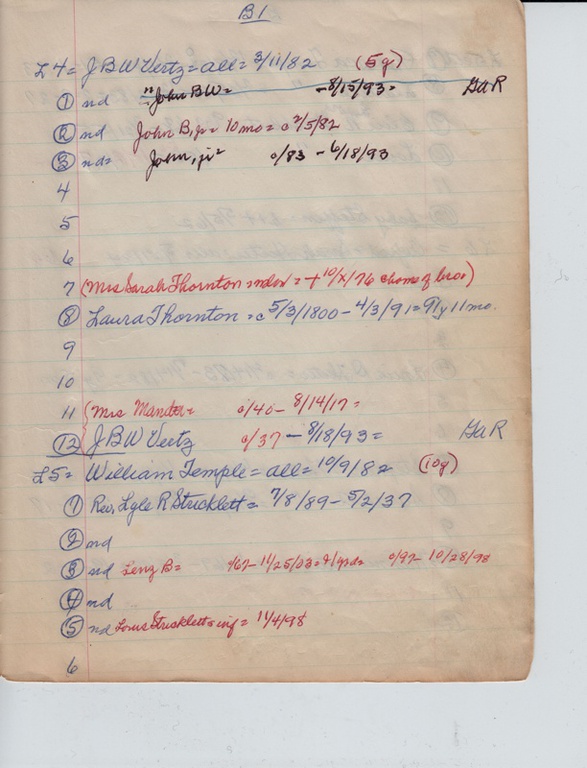 B1
L4 = J B W Vertz = all = 3/11/82 (5g)
① nd "John BW = - 8/15/93 = GaR
② nd John B, jr = 10 mo = c 2/5/82
③ nd = John, jr c/83 - 6/18/93
4
5
6
7 (Mrs Sarah Thornton = ndor = + 10/x/76 @ home of bro)
⑧ Laura Thornton = c 5/3/1800 - 4/3/91 = 91y 11 mo.
9
10
11 (Mrs Mander = c/40 - 8/14/17 =
⑫ J B W Vertz c/37 - 8/18/93 = GaR
L5 = William Temple = all = 10/9/82 (10g)
① Rev. Lyle R Stricklett = 7/8/89 - 5/2/37
② nd
③ nd Lenz B = c/97 - 10/28/98
④ nd
⑤ nd Louis Stricklett = inf = 11/4/98
6